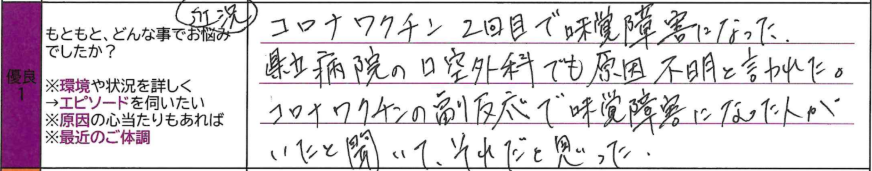 近況
もともと、どんな事でお悩み
でしたか?
優良
1
※環境や状況を詳しく
→エピソードを伺いたい
※原因の心当たりもあれば
※最近のご体調
コロナワクチン 2回目で味覚障害になった。
県立病院の口空外科でも原因不明と言われた。
コロナワクチンの副反応で味覚障害になった人が
いたと聞いて、それだと思った。